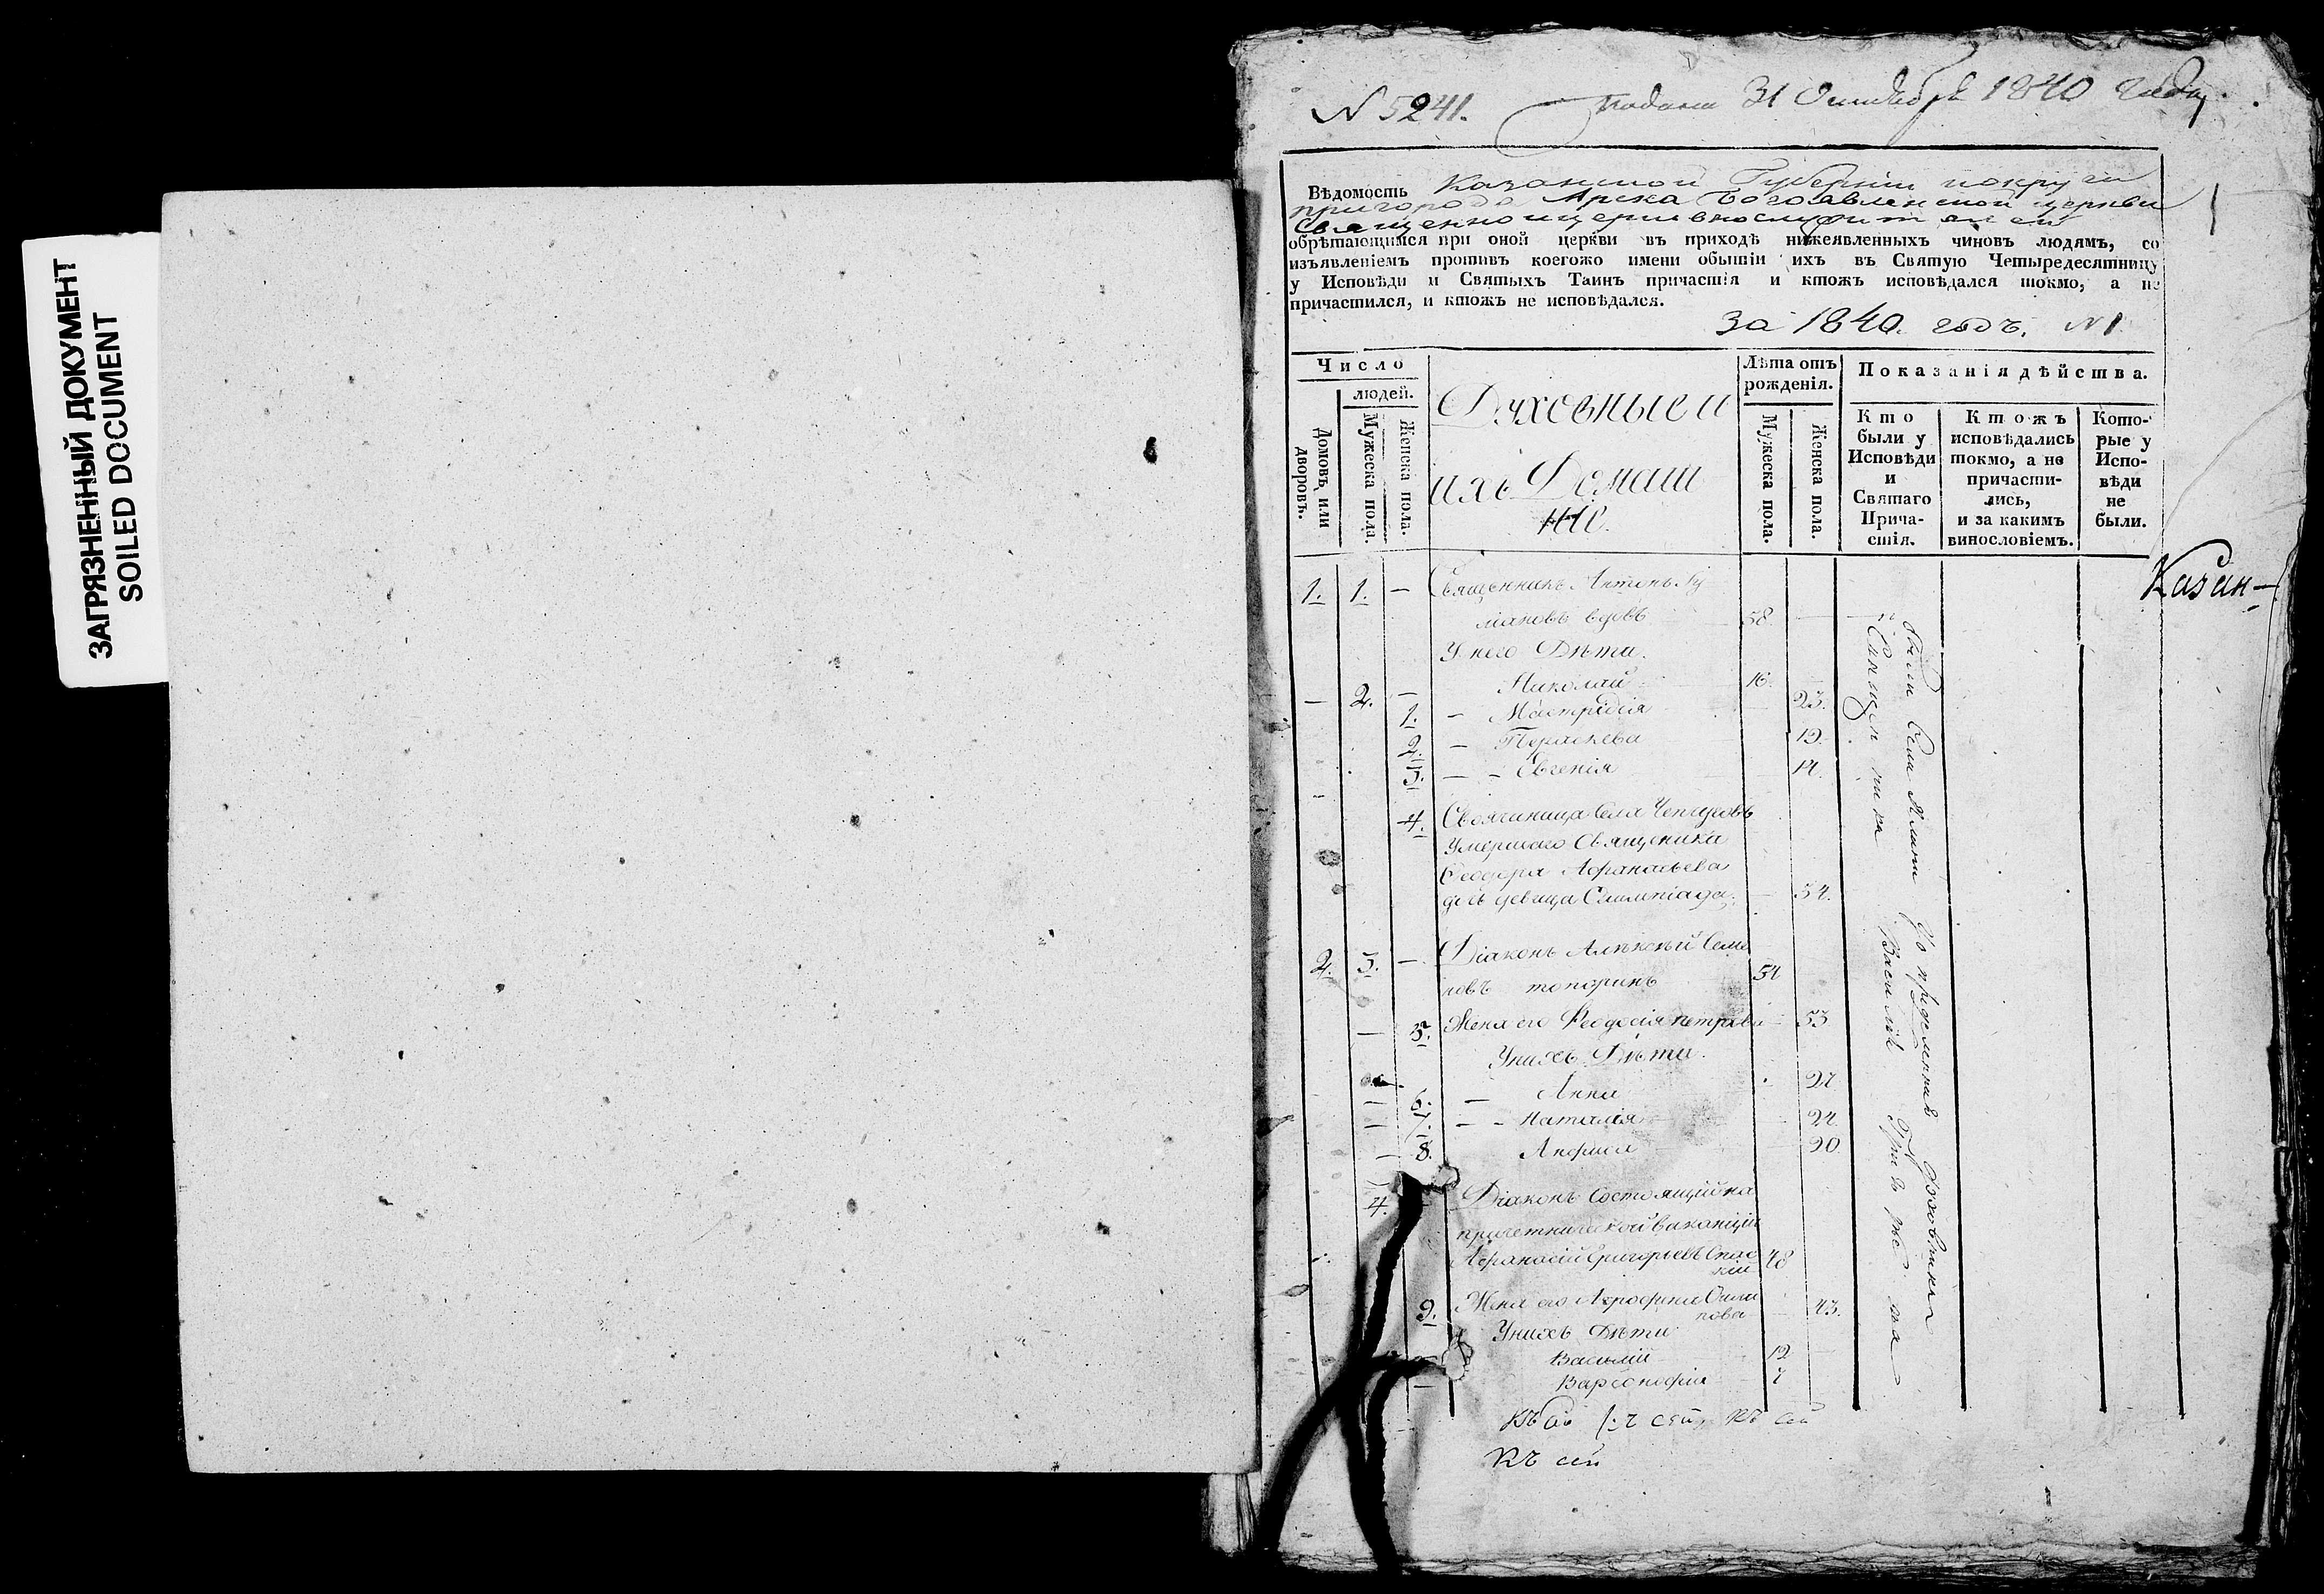 ЗАГРЯЗНЕННЫЙ ДОКУМЕНТ
SOILED DOCUMENT
N 5241. подана 31 Октября 1840 года.
Вѣдомость Казанской Губерніи
пригорода Арска Богоявленской церкви
Священноцерковнослужителей
обрѣтающимся при оной церкви въ приходѣ нижеявленныхъ чиновъ людямъ, со
изъявленіемъ противъ коегожо имени обытіи ихъ въ Святую Четыредесятницу
у Исповѣди и Святыхъ Таинъ причастія и ктожъ исповѣдался токмо, а не
причастился, и ктожъ не исповѣдался.
за 1840. годъ. N 1.
Число
людей.
Домовъ или дворовъ.
Мужеска пола.
Женска пола.
Духовные и
ихъ Домаш
ніе.
Лѣта отъ рожденія.
Мужеска пола.
Женска пола.
Показанія дѣйства.
Кто были у Исповѣди и Святаго Прича-стія.
Ктожъ исповѣдались токмо, а не причасти-лись, и за какимъ винословіемъ.
Кото-рые у Испо-вѣди не были.
Казан-
1. 1. — Священникъ Антонъ
вдовъ 58.
У него Дѣти.
— 2. — Николай 16.
1. — 23.
2. — Параскева 19.
3. — Евгенія 14.
4. Своячиница Села
Умершаго Священика
Ѳеодора Афанасьева
дочь девица 54.
2. 3. — Діаконъ Алѣксѣй Семе
новъ топоринъ 54
— 5. Жена его Феодосія петрова 53
У нихъ Дѣти.
— 6. — Анна 27
— 7. — Наталія 24.
— 8. Анфиса 20.
4. Діаконъ Состоящій на
причетнической ваканціи
Афанасій Григорьевъ Спас
кій 48
9. Жена его 43.
У нихъ Дѣти
Василій 12
— Варсонофій 7
были
Священника Василій
къ сей
къ сей